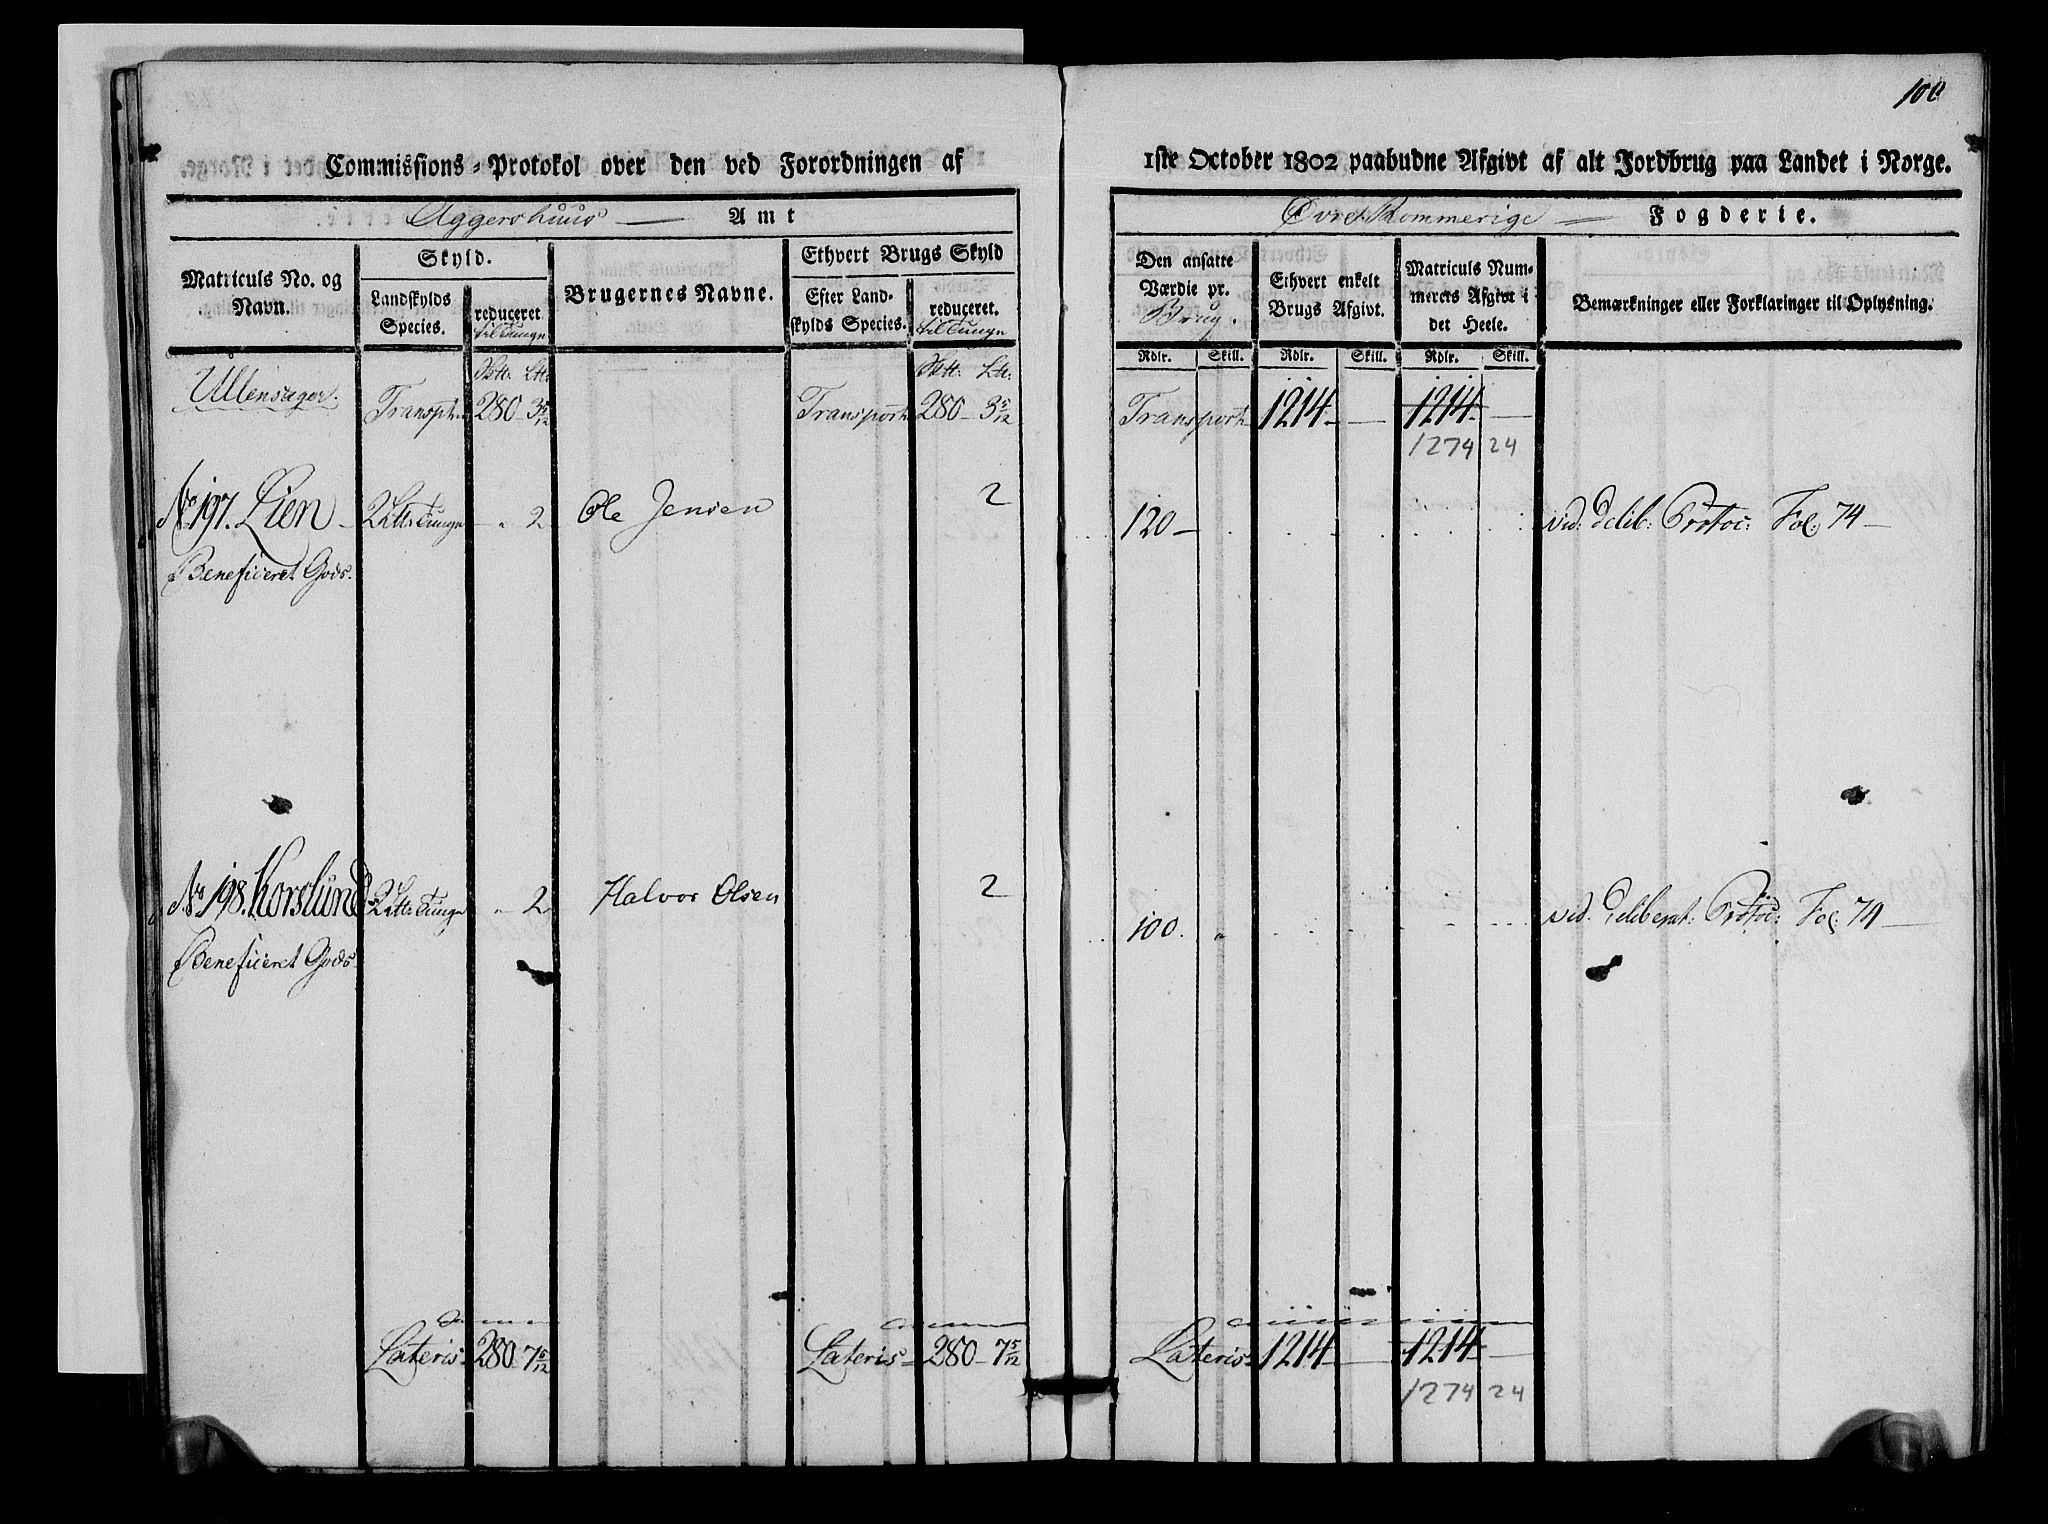 100
Commissions-Protokol over den ved Forordningen af 1ste October 1802 paabudne Afgivt af alt Jordbrug paa Landet i Norge.
Aggershuus — Amt
Øvre Rommerige — Fogderie.
Matriculs No. og Navn.
Skyld.
Landskylds Species.
reduceret til Tunge
Brugernes Navne.
Ethvert Brugs Skyld
Efter Landskylds Species.
reduceret. til Tunge
Den ansatte Værdie pr. Brug.
Ethvert enkelt Brugs Afgivt.
Matriculs Nummerets Afgivt i det Heele.
Bemærkninger eller Forklaringer til Oplysning.
Rdlr. Skill. Rdlr. Skill. Rdlr. Skill.
Ullensager. Transpt 280 - 3 5/12 Transport 280 - 3 5/12 Transport 1214 - — 1214 - —
1274 24
No 197. Lien - 2 Ltt: Tunge - „ 2 Ole Jensen 2 120 — vid: Delib: Protoc: Fol: 74 —
Beneficeret Gods.
No 198. Korslund - 2 Ltt: Tunge „ 2 Halvor Olsen 2 100. „ vid. Deliberat: Protoc: Fol: 74 —
Beneficeret Gods
Lateris 280 - 7 5/12 Lateris - 280 - 7 5/12 Lateris 1214 - — 1214 - —
1274 24